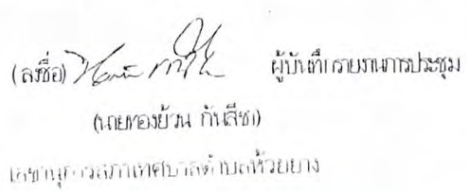 (ลงชื่อ) ผู้บันทึกรายงานการประชุม
(นายทองย้วน กันสีชา)
เลขานุการสภาเทศบาลตำบลห้วยยาง